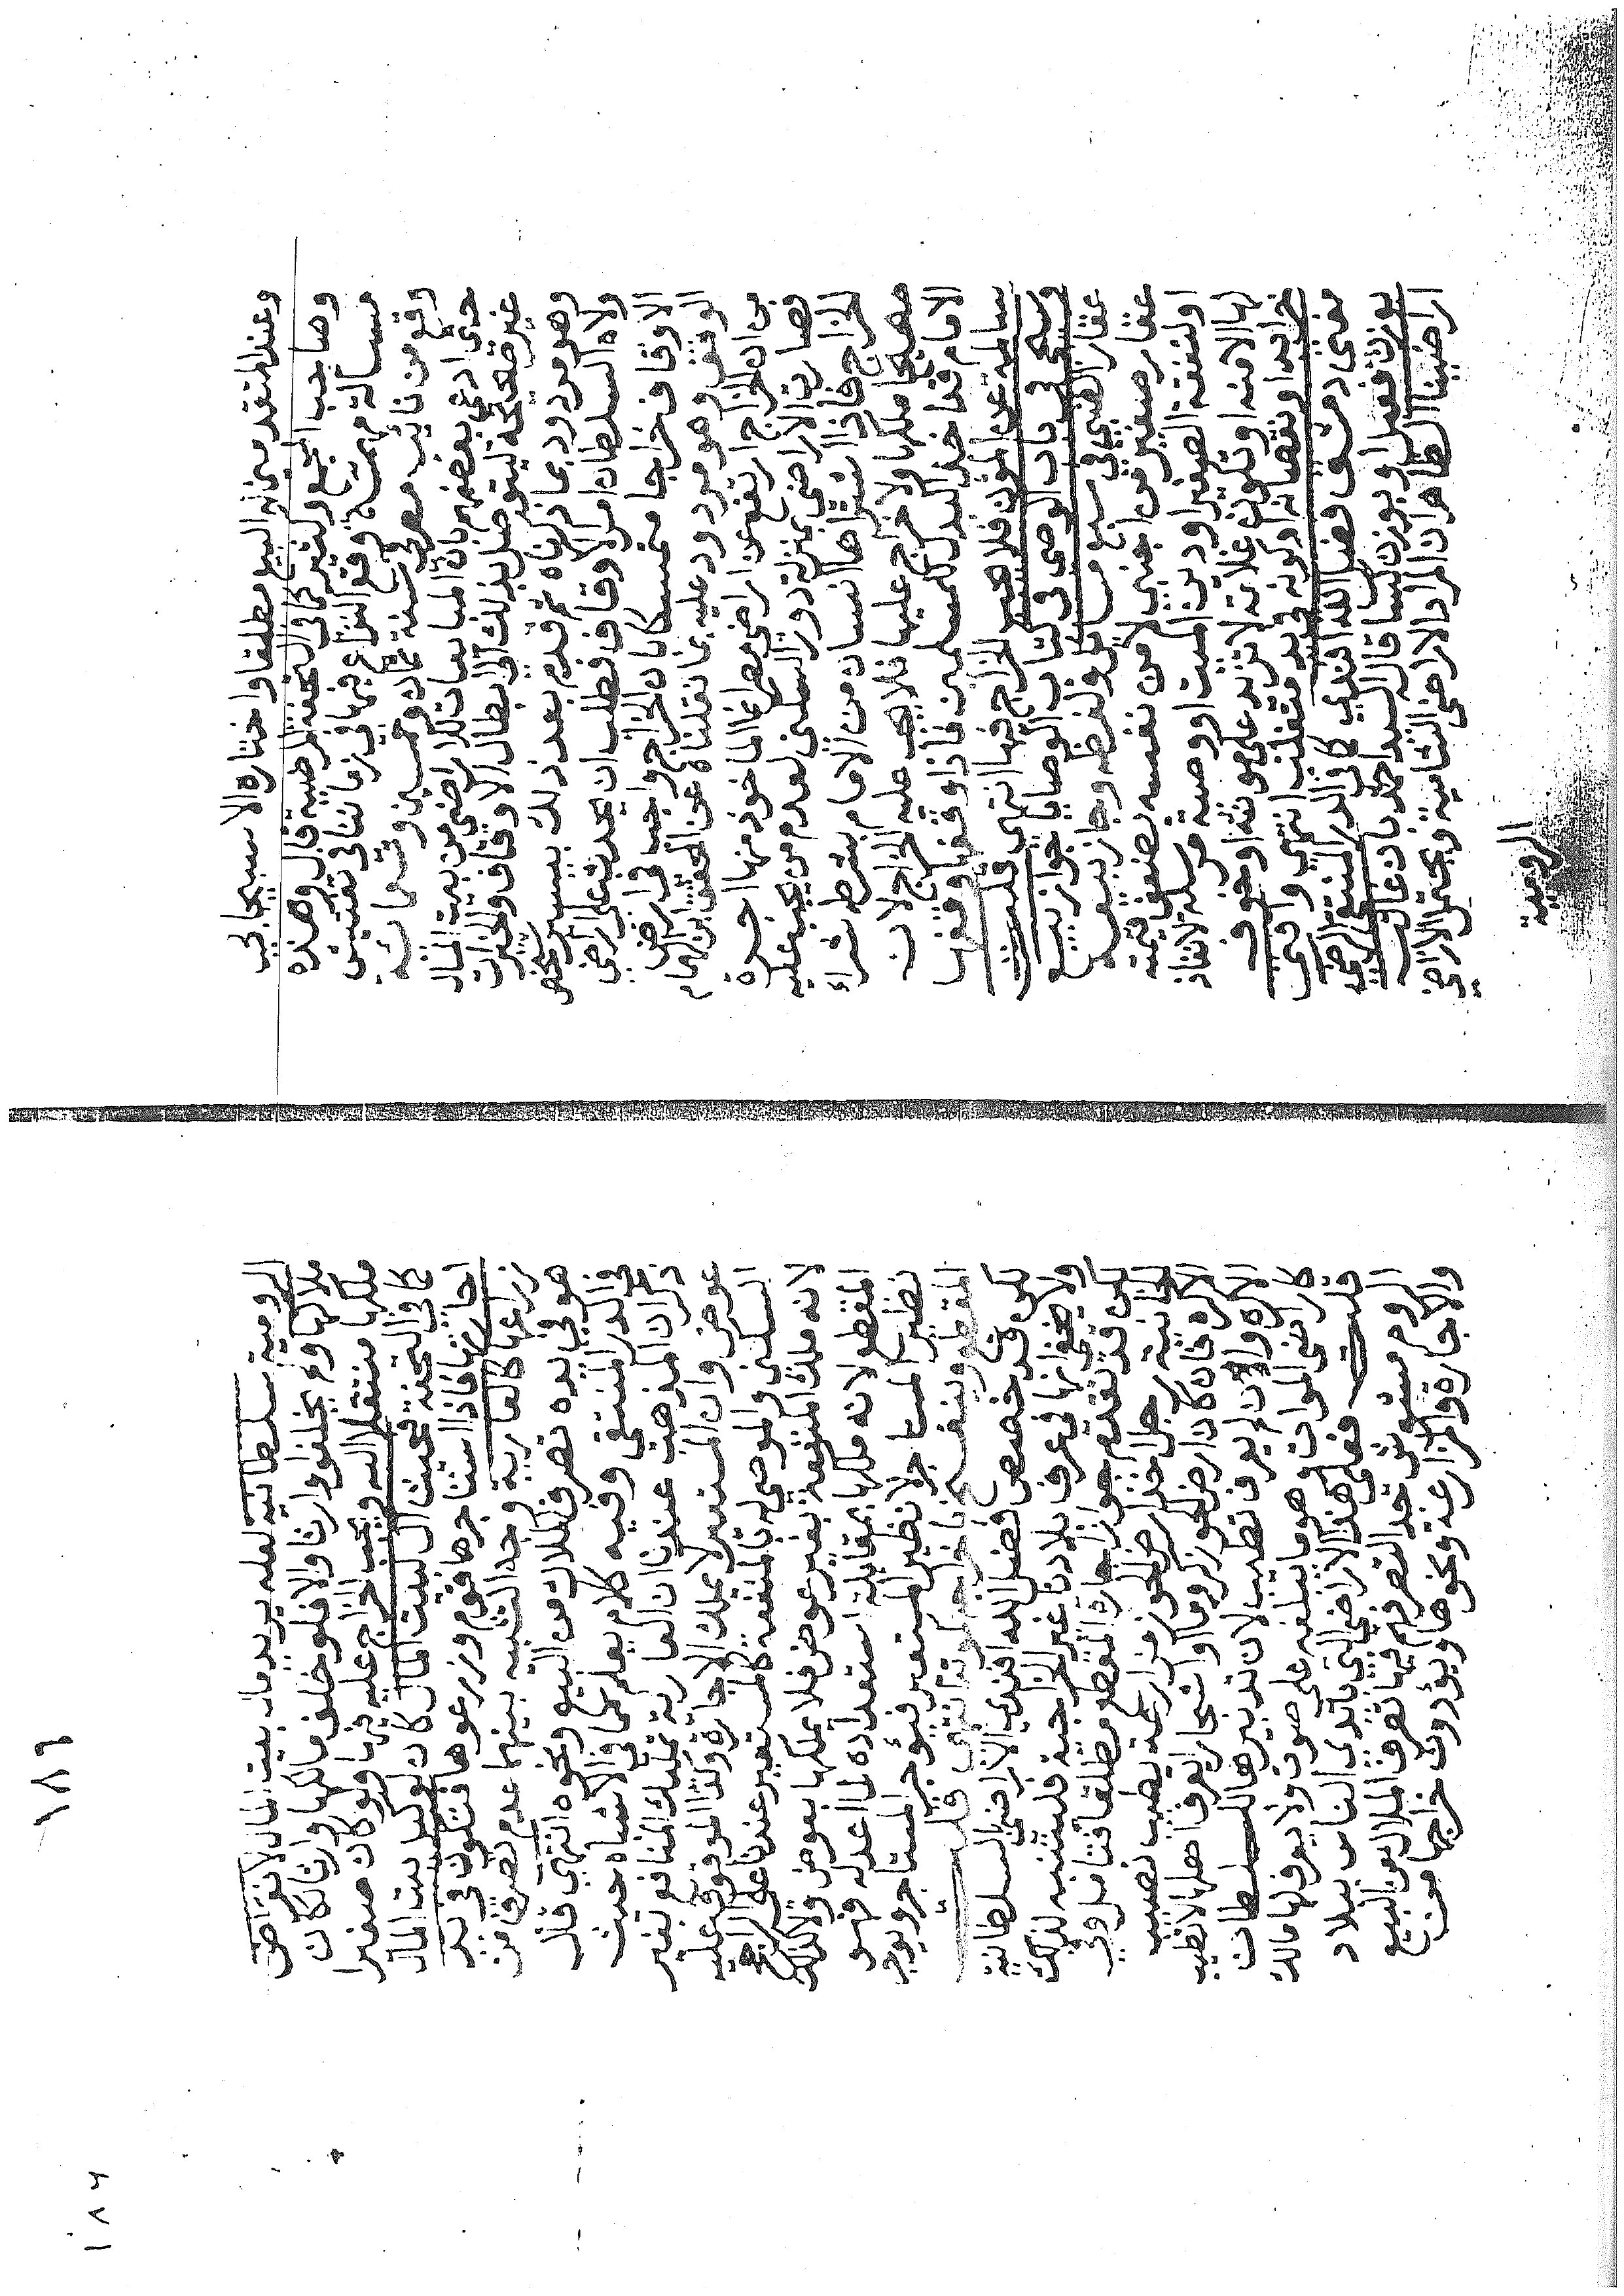 وعند المتقدمين له البيع مطلقا واختاره الاسبيجابي
وصاحب المجمع وكثير كما في التحفة المرضية قال وهذه
مسألة مهمة وقع النزاع فيها في زماننا في تفتيش
وقع من نائب مصر في سنة ثمان وخمسين وتسعمائة
حتى ادعى بعضهم بان المبايعات للاراضي من بيت المال
غير صحيحة ليتوصل بذلك الى ابطال الاوقاف والخيرات
وهو مردود بما ذكرناه ثم قدم بعد ذلك بيسير شخص
ولاه السلطان امر الاوقاف فطلب ان يحدث على اراضي
الاوقاف خراجا متمسكا بان الخراج واجب في ارض
الوقف وهو مردود عليه بما نقلناه عن المحقق ابن الهمام
من ان الخراج ارتفع عن اراضي مصر انما الماخوذ منها اجرة
فصارت الاراضي بمنزلة دور السكنى لعدم من يجب عليه
الخراج فاذا اشتراها انسان من الامام بشرط شراء
صحيحا ملكها ولا خراج عليها فلا يجب عليه الخراج لان
الامام قد اخذ البدل للمسلمين فاذا وقفها وقفها
سالمة عن المؤن فلا يجب الخراج فيها انتهى قلت
وسيجي في باب الوصي في كتاب الوصايا جواز بيع
عقار الصبي في سبع مسائل ولفظه وجاز بيعه
عقار صغير من اجنبي لا من نفسه بضعف قيمته
او لنفقة الصغير او دين الميت او وصية مرسلة لا نفاذ
لها الا منه او تكون غلاته لا تزيد على مؤنته او خوف
خرابه او نقصانه او كونه في يد متغلب انتهى وافتى
مفتي دمشق فضل الله افندي كما في الدر المنتقى
بوزن فعيل او بوزن كسا قال السيد احمد بان غالب
اراضينا الظاهر ان المراد الاراضي الشامية ويحتمل الاراضي
الرومية
الرومية سلطانية لعله يريد مال بيت المال لانقراض
ملاكها ولم يخلفوا وارثا والا فلو خلف مالكها وارثا لكان
ملكها منتقلا اليه ويجب الخراج عليه فيها ولو كان صغيرا
كما في التحفة فحيث ال لبيت المال كان لوكيل بيت المال
اجارتها فاذا استاجرها قوم وزرعوها فتكون في يد
زراعها كالعارية وجه الشبه بينهما عدم تصرف من
هو في يده تصرف الملاك من البيع ونحوه انتهى قلت
وفي الدر المنتقى وفيه كلام يعلم مما في الاشباه حيث
ذكر ان المذهب عندنا ان العارية تمليك المنافع بغير
عوض وان المستعير لا يملك الاجارة وكذا الموقوف عليه
السكنى والموصى له بالمنفعة كالمستعير عندنا على الراجح
لانه ملك المنفعة بغير عوض فلا يملكها بعوض ولا كذلك
المقطع لانه ملكها بمقابلة استعداده لما اعد له فهو
نظير المستاجر لا نظير المستعير فيؤجر المستاجر ويوجر
المقطع وينفسخ باخراجه او موته انتهى قلت
لكن قد خصص فضل الله افندي الاراضي السلطانية
ولا خفا انها في عرف بلادنا غير الخراجية فليتنبه لذلك
لكن قد تقدم جواز اجارة المقطع مطلقا فتامل وفي
الخانية رجل اخذ ارض الحوز مزارعة يطيب نصيب
الاكرة فان كان ارض الحوز كروما او اشجارا يعرف اهلها لا تطيب
للاكرة وان لم يعرف تطيب لان تدبيرها للسلطان
كاراضي الموات وهو ما يبلغه على صوت ولا يعرف لها مالك
قلت فعلى هذا الاراضي التي بايدي الناس ببلاد
الروم مشوش تجد التصرفهم فيها تصرف الملاك من البيع
والاجارة والمزارعة ونحوها ويؤدون خراجها من
١٨٦
١٨٦